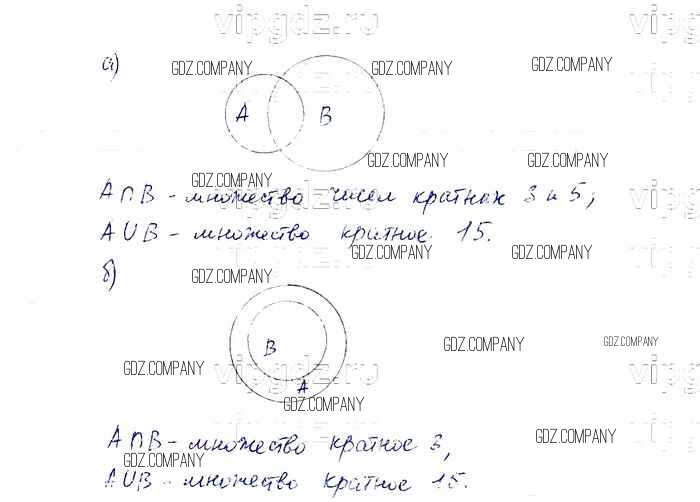 vipgdz.ru
vipgdz.ru
а)
GDZ.COMPANY GDZ.COMPANY GDZ.COMPANY
A B
GDZ.COMPANY GDZ.COMPANY
GDZ.COMPANY
A∩B - множество чисел кратных 3 и 5;
A∪B - множество кратное 15.
GDZ.COMPANY GDZ.COMPANY
б)
GDZ.COMPANY
B
A
GDZ.COMPANY GDZ.COMPANY
GDZ.COMPANY
vipgdz.ru
GDZ.COMPANY
A∩B - множество кратное 3,
GDZ.COMPANY
GDZ.COMPANY
A∪B - множество кратное 15.